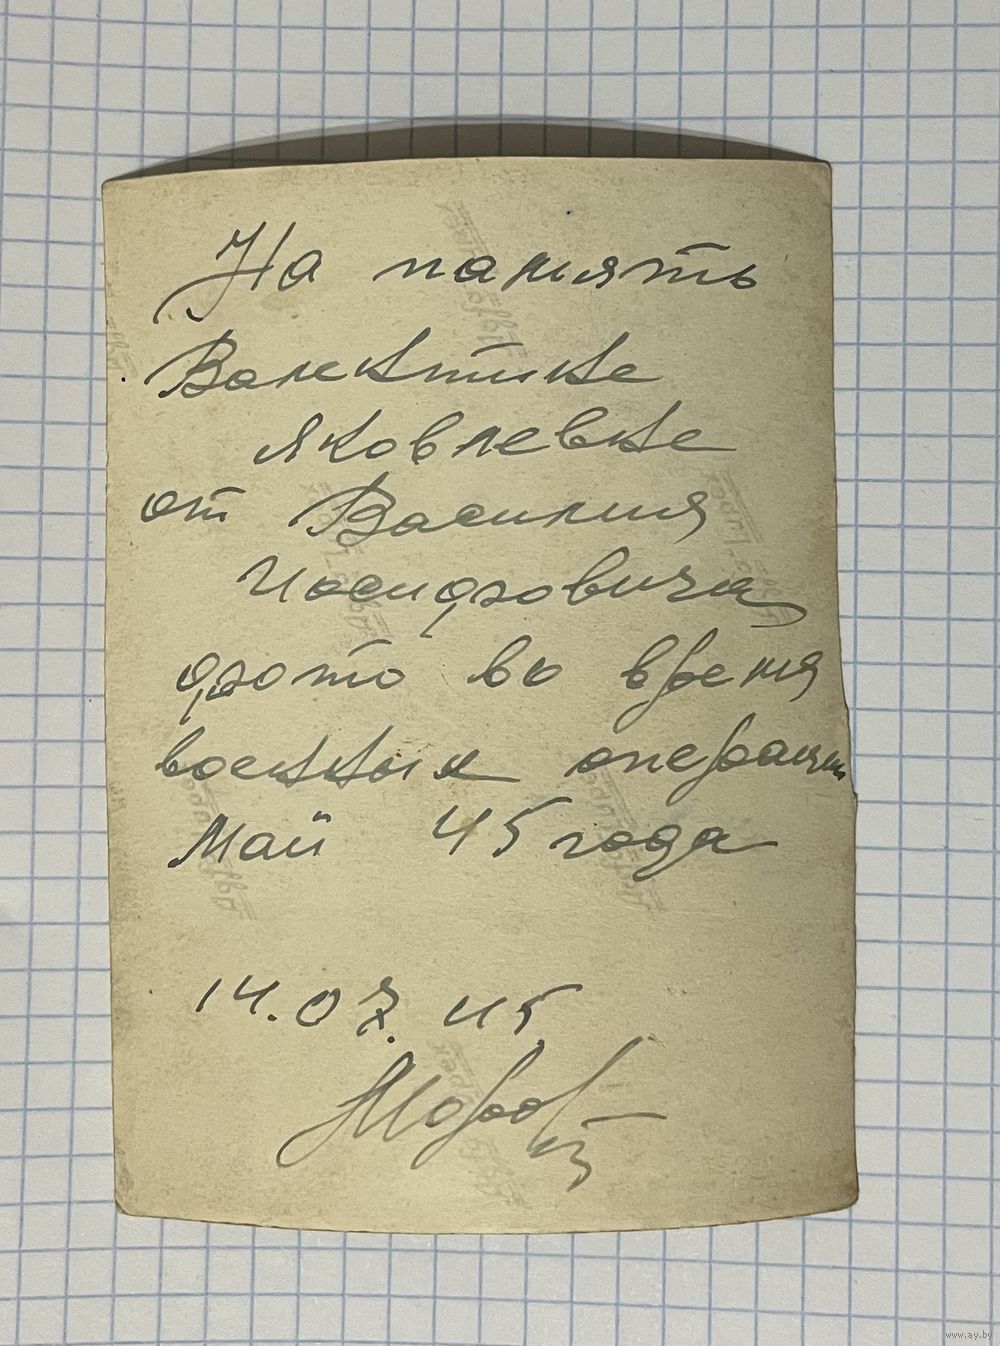 На память
Валентине
Яковлевне
от Василия
Иосифовича
фото во время
военных операций
Май 45 года
14.07.45
www.ay.by